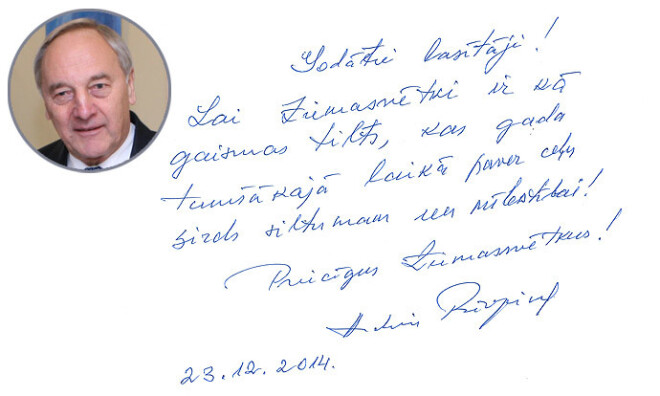 Godātie lasītāji!
Lai Ziemasvētki ir kā
gaismas tilts, kas gada
tumšākajā laikā paver ceļu
sirds siltumam un mīlestībai!
Priecīgus Ziemasvētkus!
23.12.2014.